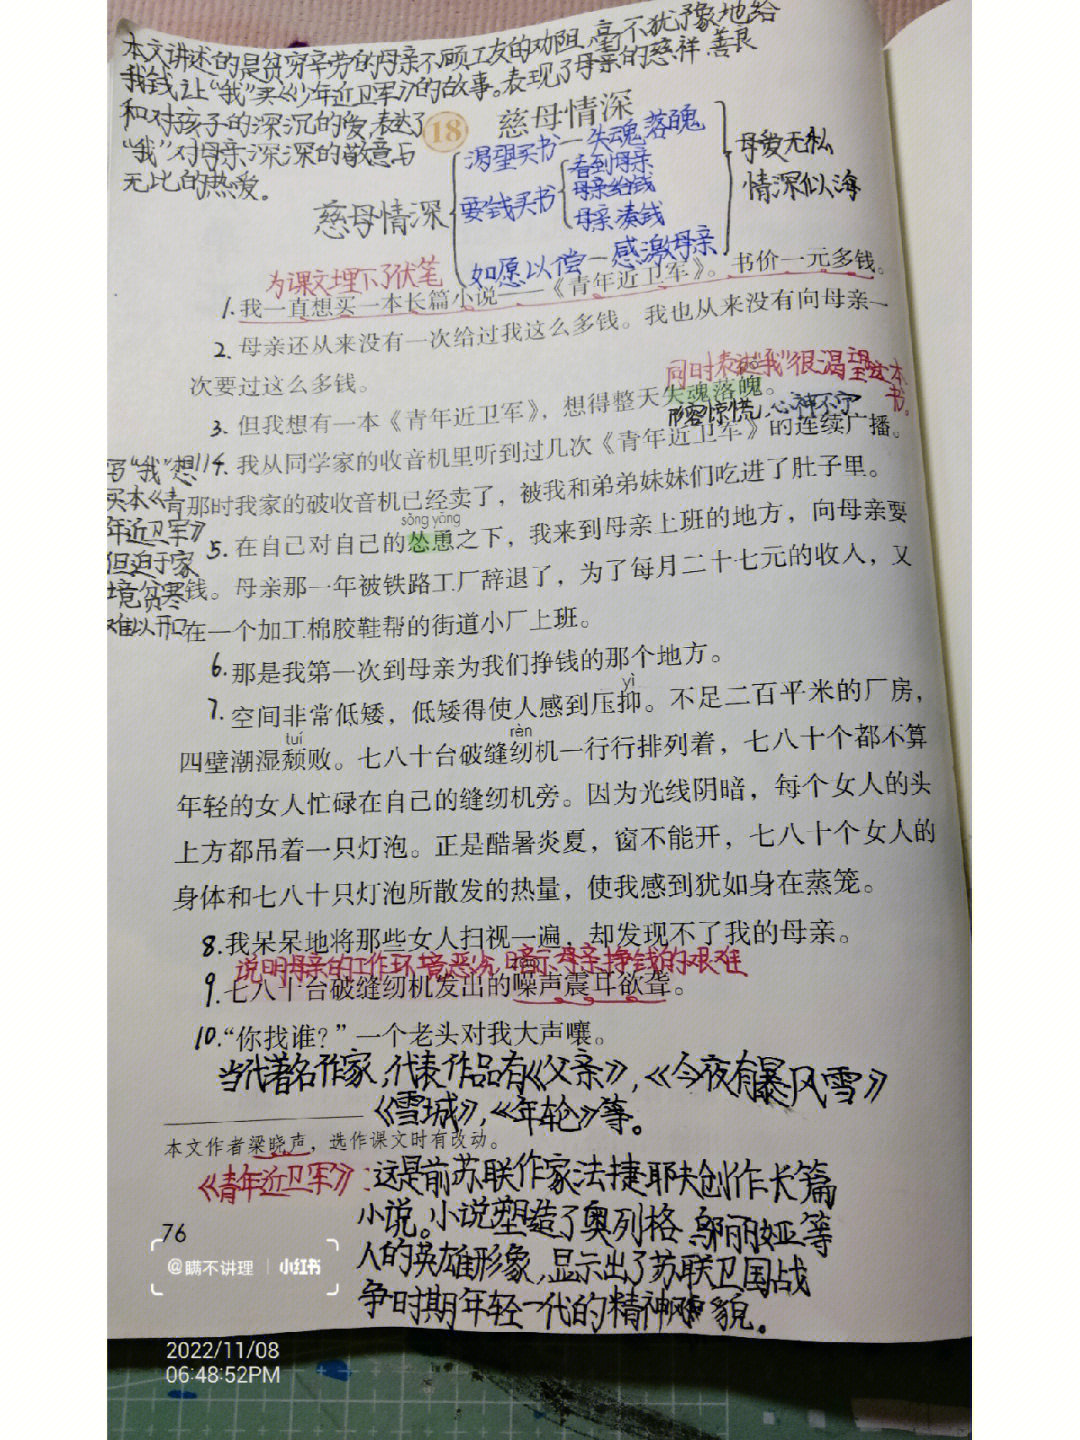 本文讲述的是贫穷辛劳的母亲不顾工友的劝阻,毫不犹豫地给
我钱让“我”买《少年近卫军》的故事。表现了母亲的慈祥善良
和对孩子的深沉的爱,表达了
“我”对母亲深深的敬意与
无比的热爱。
18 慈母情深
慈母情深
渴望买书—失魂落魄
要钱买书
看到母亲
母亲给钱
母亲凑钱
如愿以偿—感激母亲
母爱无私
情深似海
为课文埋下了伏笔
1.我一直想买一本长篇小说——《青年近卫军》。书价一元多钱。
2.母亲还从来没有一次给过我这么多钱。我也从来没有向母亲一
次要过这么多钱。
同时表达“我”很渴望这本
书。
3.但我想有一本《青年近卫军》,想得整天失魂落魄。
形容惊慌,心神不宁
4.我从同学家的收音机里听到过几次《青年近卫军》的连续广播。
那时我家的破收音机已经卖了,被我和弟弟妹妹们吃进了肚子里。
写“我”想
买本《青
年近卫军》
但迫于家
境贫寒
难以开口
sǒng yǒng
5.在自己对自己的怂恿之下,我来到母亲上班的地方,向母亲要
钱。母亲那一年被铁路工厂辞退了,为了每月二十七元的收入,又
在一个加工棉胶鞋帮的街道小厂上班。
6.那是我第一次到母亲为我们挣钱的那个地方。
yì
7.空间非常低矮,低矮得使人感到压抑。不足二百平米的厂房,
tuí rèn
四壁潮湿颓败。七八十台破缝纫机一行行排列着,七八十个都不算
年轻的女人忙碌在自己的缝纫机旁。因为光线阴暗,每个女人的头
上方都吊着一只灯泡。正是酷暑炎夏,窗不能开,七八十个女人的
身体和七八十只灯泡所散发的热量,使我感到犹如身在蒸笼。
8.我呆呆地将那些女人扫视一遍,却发现不了我的母亲。
说明母亲的工作环境恶劣,暗示母亲挣钱的艰难
9.七八十台破缝纫机发出的噪声震耳欲聋。
10.“你找谁?”一个老头对我大声嚷。
当代著名作家,代表作品有《父亲》,《今夜有暴风雪》
《雪城》,《年轮》等。
本文作者梁晓声,选作课文时有改动。
《青年近卫军》:这是前苏联作家法捷耶夫创作长篇
小说。小说塑造了奥列格、邬丽娅等
人的英雄形象,显示出了苏联卫国战
争时期年轻一代的精神面貌。
76
@瞒不讲理 | 小红书
2022/11/08
06:48:52PM